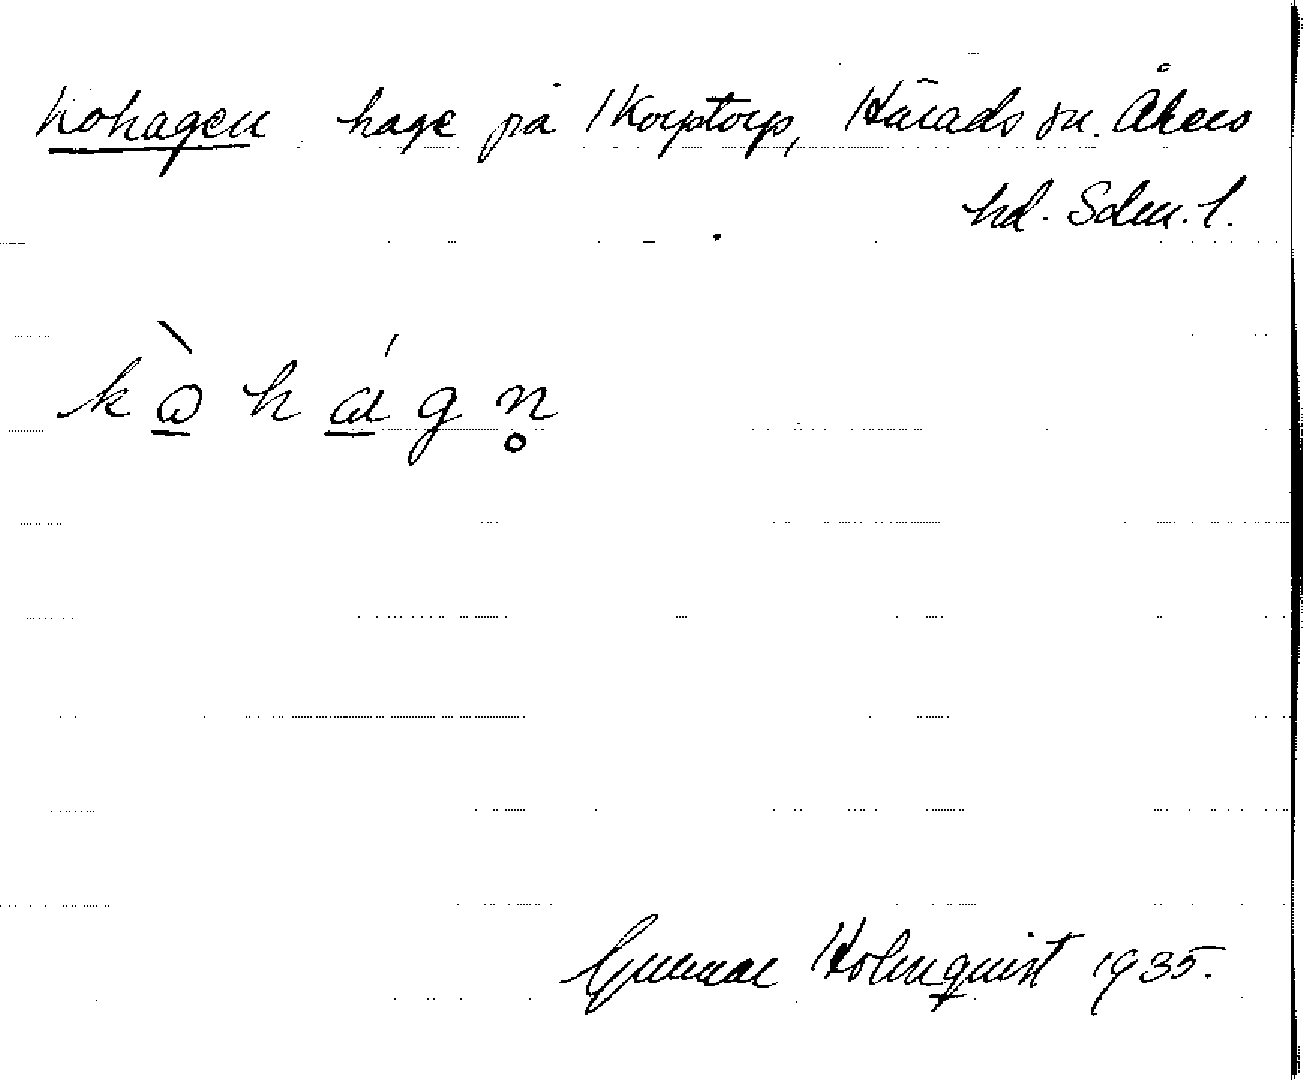 Kohagen hage på Korptorp, Härads sn. Åkers
hd. Sdm. l.
kꞷ̠̀há̠gn̥
Gunnar Holmquist 1935.